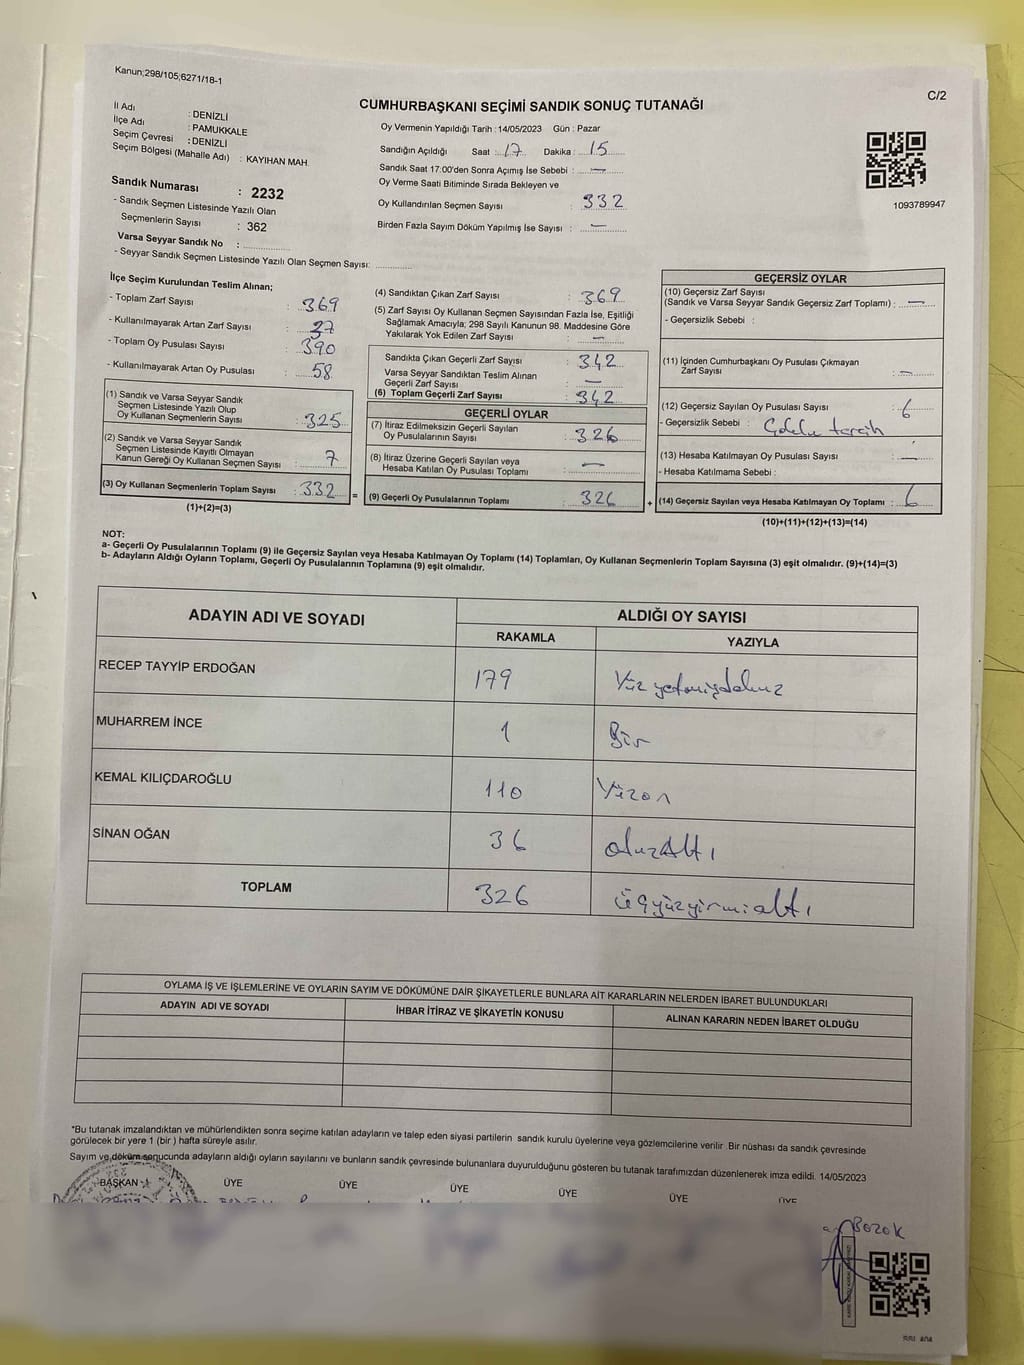 Kanun;298/105;6271/18-1
C/2
CUMHURBAŞKANI SEÇİMİ SANDIK SONUÇ TUTANAĞI
İl Adı : DENİZLİ
İlçe Adı : PAMUKKALE
Seçim Çevresi : DENİZLİ
Seçim Bölgesi (Mahalle Adı) : KAYIHAN MAH.
Sandık Numarası : 2232
- Sandık Seçmen Listesinde Yazılı Olan
Seçmenlerin Sayısı : 362
Varsa Seyyar Sandık No :
- Seyyar Sandık Seçmen Listesinde Yazılı Olan Seçmen Sayısı:
Oy Vermenin Yapıldığı Tarih : 14/05/2023 Gün : Pazar
Sandığın Açıldığı Saat : 17 Dakika : 15
Sandık Saat 17:00'den Sonra Açımış İse Sebebi : —
Oy Verme Saati Bitiminde Sırada Bekleyen ve
Oy Kullandırılan Seçmen Sayısı : 332
Birden Fazla Sayım Döküm Yapılmış İse Sayısı : —
1093789947
İlçe Seçim Kurulundan Teslim Alınan;
- Toplam Zarf Sayısı : 369
- Kullanılmayarak Artan Zarf Sayısı : 37
- Toplam Oy Pusulası Sayısı : 390
- Kullanılmayarak Artan Oy Pusulası : 58
(1) Sandık ve Varsa Seyyar Sandık
Seçmen Listesinde Yazılı Olup
Oy Kullanan Seçmenlerin Sayısı : 325
(2) Sandık ve Varsa Seyyar Sandık
Seçmen Listesinde Kayıtlı Olmayan
Kanun Gereği Oy Kullanan Seçmen Sayısı : 7
(3) Oy Kullanan Seçmenlerin Toplam Sayısı : 332
(1)+(2)=(3)
(4) Sandıktan Çıkan Zarf Sayısı : 369
(5) Zarf Sayısı Oy Kullanan Seçmen Sayısından Fazla İse, Eşitliği
Sağlamak Amacıyla; 298 Sayılı Kanunun 98. Maddesine Göre
Yakılarak Yok Edilen Zarf Sayısı : —
Sandıkta Çıkan Geçerli Zarf Sayısı : 342
Varsa Seyyar Sandıktan Teslim Alınan
Geçerli Zarf Sayısı : —
(6) Toplam Geçerli Zarf Sayısı : 342
GEÇERLİ OYLAR
(7) İtiraz Edilmeksizin Geçerli Sayılan
Oy Pusulalarının Sayısı : 326
(8) İtiraz Üzerine Geçerli Sayılan veya
Hesaba Katılan Oy Pusulası Toplamı : —
= (9) Geçerli Oy Pusulalarının Toplamı : 326
GEÇERSİZ OYLAR
(10) Geçersiz Zarf Sayısı
(Sandık ve Varsa Seyyar Sandık Geçersiz Zarf Toplamı) : —
- Geçersizlik Sebebi :
(11) İçinden Cumhurbaşkanı Oy Pusulası Çıkmayan
Zarf Sayısı : —
(12) Geçersiz Sayılan Oy Pusulası Sayısı : 6
- Geçersizlik Sebebi : tercih
(13) Hesaba Katılmayan Oy Pusulası Sayısı : —
- Hesaba Katılmama Sebebi :
+ (14) Geçersiz Sayılan veya Hesaba Katılmayan Oy Toplamı : 6
(10)+(11)+(12)+(13)=(14)
NOT:
a- Geçerli Oy Pusulalarının Toplamı (9) ile Geçersiz Sayılan veya Hesaba Katılmayan Oy Toplamı (14) Toplamları, Oy Kullanan Seçmenlerin Toplam Sayısına (3) eşit olmalıdır. (9)+(14)=(3)
b- Adayların Aldığı Oyların Toplamı, Geçerli Oy Pusulalarının Toplamına (9) eşit olmalıdır.
ADAYIN ADI VE SOYADI ALDIĞI OY SAYISI
RAKAMLA YAZIYLA
RECEP TAYYİP ERDOĞAN 179 Yüz yetmişdokuz
MUHARREM İNCE 1 Bir
KEMAL KILIÇDAROĞLU 110 Yüzon
SİNAN OĞAN 36 otuzAltı
TOPLAM 326 üçyüzyirmialtı
OYLAMA İŞ VE İŞLEMLERİNE VE OYLARIN SAYIM VE DÖKÜMÜNE DAİR ŞİKAYETLERLE BUNLARA AİT KARARLARIN NELERDEN İBARET BULUNDUKLARI
ADAYIN ADI VE SOYADI İHBAR İTİRAZ VE ŞİKAYETİN KONUSU ALINAN KARARIN NEDEN İBARET OLDUĞU
*Bu tutanak imzalandıktan ve mühürlendikten sonra seçime katılan adayların ve talep eden siyasi partilerin sandık kurulu üyelerine veya gözlemcilerine verilir .Bir nüshası da sandık çevresinde
görülecek bir yere 1 (bir ) hafta süreyle asılır.
Sayım ve döküm sonucunda adayların aldığı oyların sayılarını ve bunların sandık çevresinde bulunanlara duyurulduğunu gösteren bu tutanak tarafımızdan düzenlenerek imza edildi. 14/05/2023
BAŞKAN ÜYE ÜYE ÜYE ÜYE ÜYE ÜYE
Bozok